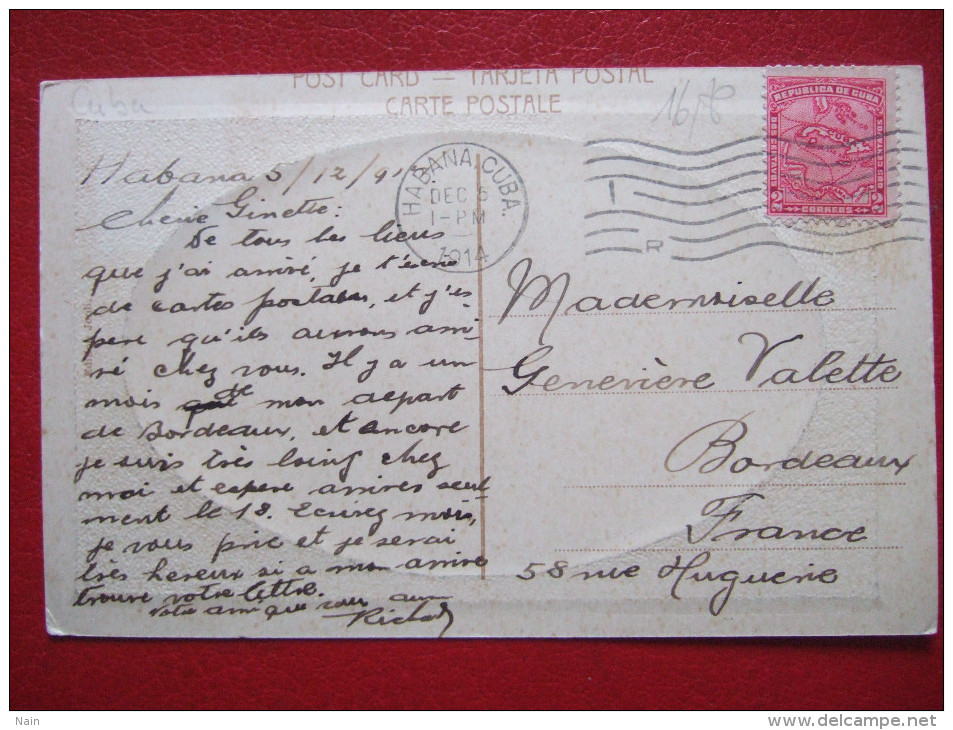 POST CARD — TARJETA POSTAL
CARTE POSTALE
Cuba
REPUBLICA DE CUBA
2
CORREOS
2
HABANA, CUBA.
DEC 5
1-PM
1914
R
Habana 5/12/914
Cherie Ginette:
De tous les lieus
que j'ai arrivé, je t'écris
de cartes postales, et j'es-
pere qu'ils aurons arri-
vé chez vous. Il y a un
mois mon depart
de Bordeaux, et encore
je suis très loing chez
moi et espere arriver seul-
ment le 18. Ecrivez mois,
je vous prie et je serai
très hereux si a mon arrive
trouve votre lettre.
Votre ami que vous aime
Richard
Mademoiselle
Genevière Valette
Bordeaux
France
58 rue Huguerie
Nain
www.delcampe.net